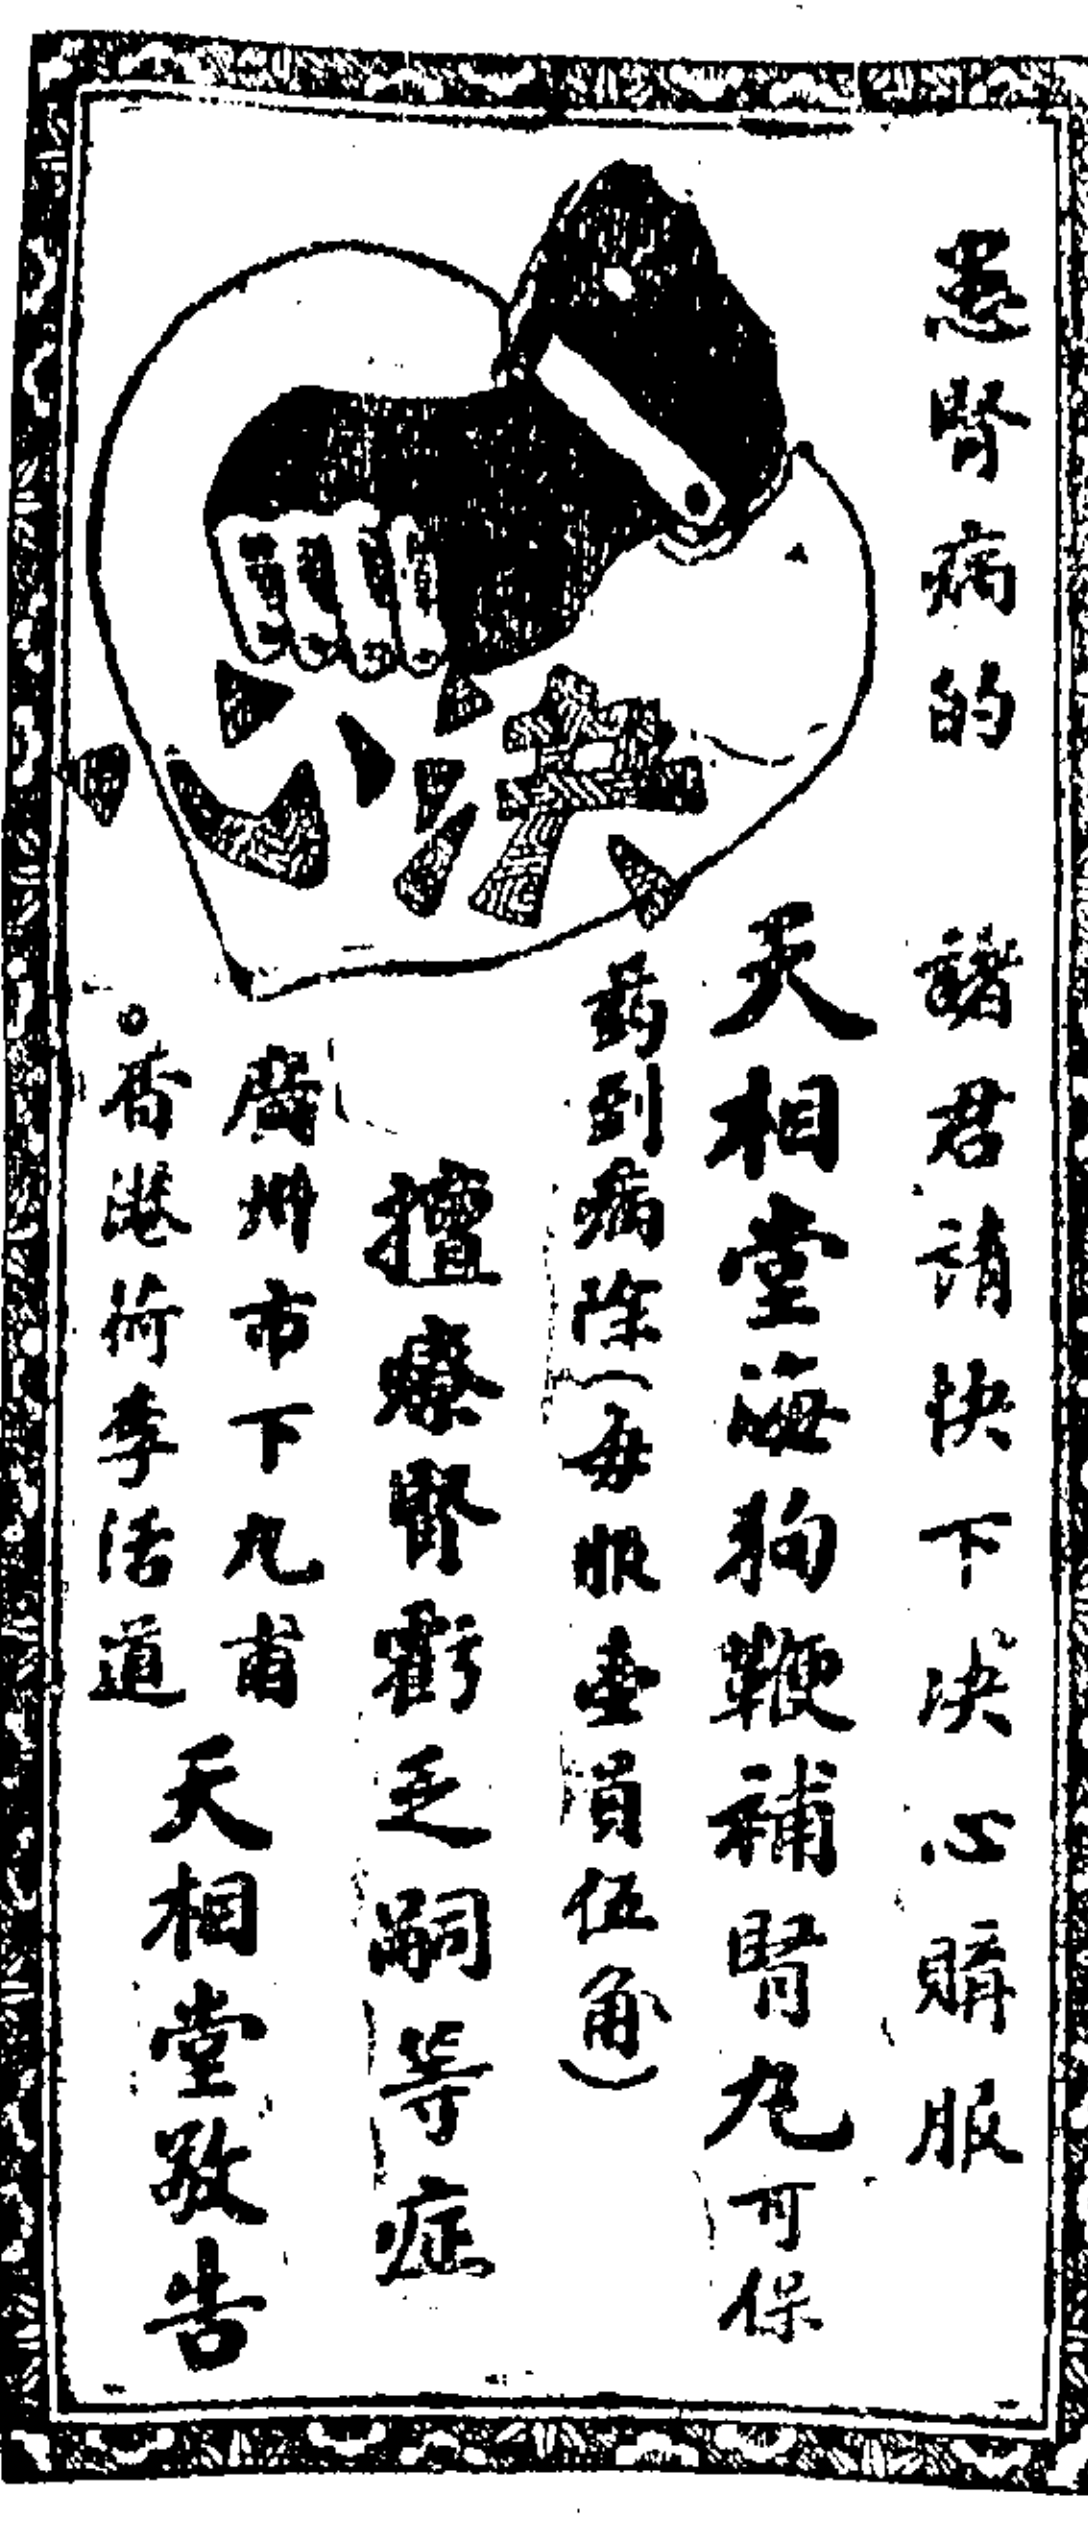 患腎病的　諸君請快下决心購服
决心
天相堂海狗鞭補腎丸可保
药到病除(每服壹員伍角)
擅療腎虧乏嗣等症
廣州市下九甫
香港荷李活道
天相堂敬告